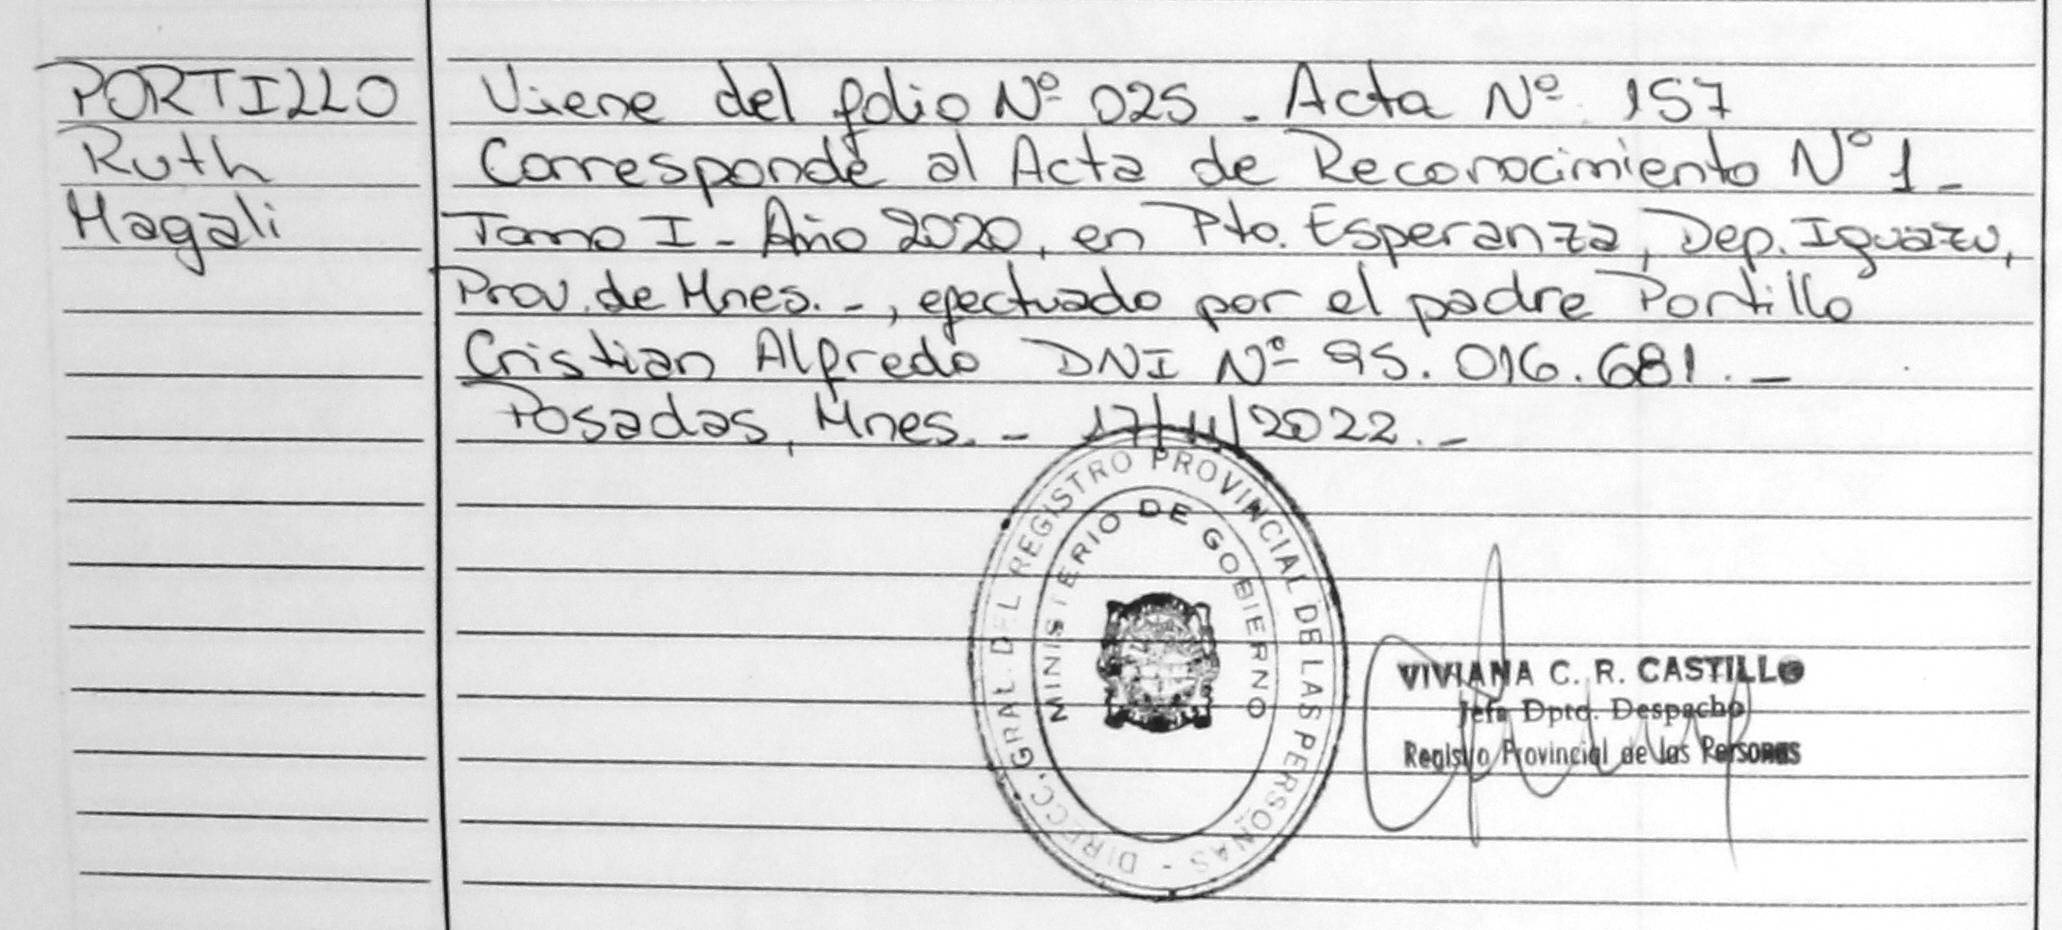 PORTILLO
Ruth
Magali
Viene del folio Nº 025 - Acta Nº 157
Corresponde al Acta de Reconocimiento Nº 1 -
Tomo I - Año 2020, en Pto. Esperanza, Dep. Iguazu,
Prov. de Mnes. -, efectuado por el padre Portillo
Cristian Alfredo DNI Nº 95.016.681. -
Posadas, Mnes. - 17/11/2022. -
DIRECC. GRAL. DEL REGISTRO PROVINCIAL DE LAS PERSONAS -
MINISTERIO DE GOBIERNO
VIVIANA C. R. CASTILLO
Jefa Dpto. Despacho
Registro Provincial de las Personas